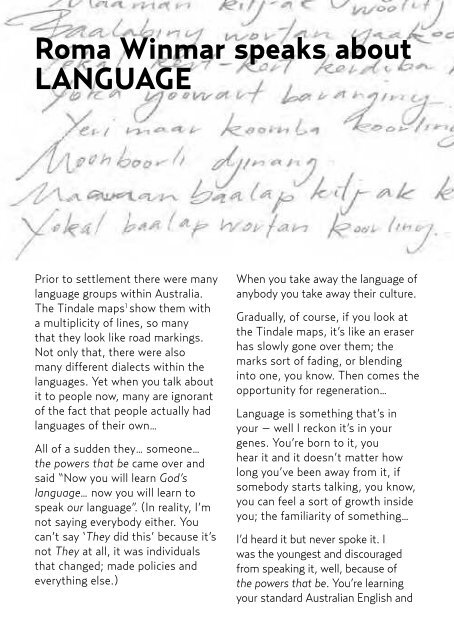 Maaman kitj-ak woolitj
Baalabiny wortan yaakoo
kert-kert kerdiba k
Yoka yoowart baranginy
Yeri maar koomba koorling
Moonboorli djinang
Maawaan baalap kitj-ak k
Yokal baalap wortan koorling.
Roma Winmar speaks about
LANGUAGE
Prior to settlement there were many
language groups within Australia.
The Tindale maps¹ show them with
a multiplicity of lines, so many
that they look like road markings.
Not only that, there were also
many different dialects within the
languages. Yet when you talk about
it to people now, many are ignorant
of the fact that people actually had
languages of their own…
All of a sudden they… someone…
the powers that be came over and
said “Now you will learn God’s
language… now you will learn to
speak our language”. (In reality, I’m
not saying everybody either. You
can’t say ‘They did this’ because it’s
not They at all, it was individuals
that changed; made policies and
everything else.)
When you take away the language of
anybody you take away their culture.
Gradually, of course, if you look at
the Tindale maps, it’s like an eraser
has slowly gone over them; the
marks sort of fading, or blending
into one, you know. Then comes the
opportunity for regeneration…
Language is something that’s in
your – well I reckon it’s in your
genes. You’re born to it, you
hear it and it doesn’t matter how
long you’ve been away from it, if
somebody starts talking, you know,
you can feel a sort of growth inside
you; the familiarity of something…
I’d heard it but never spoke it. I
was the youngest and discouraged
from speaking it, well, because of
the powers that be. You’re learning
your standard Australian English and